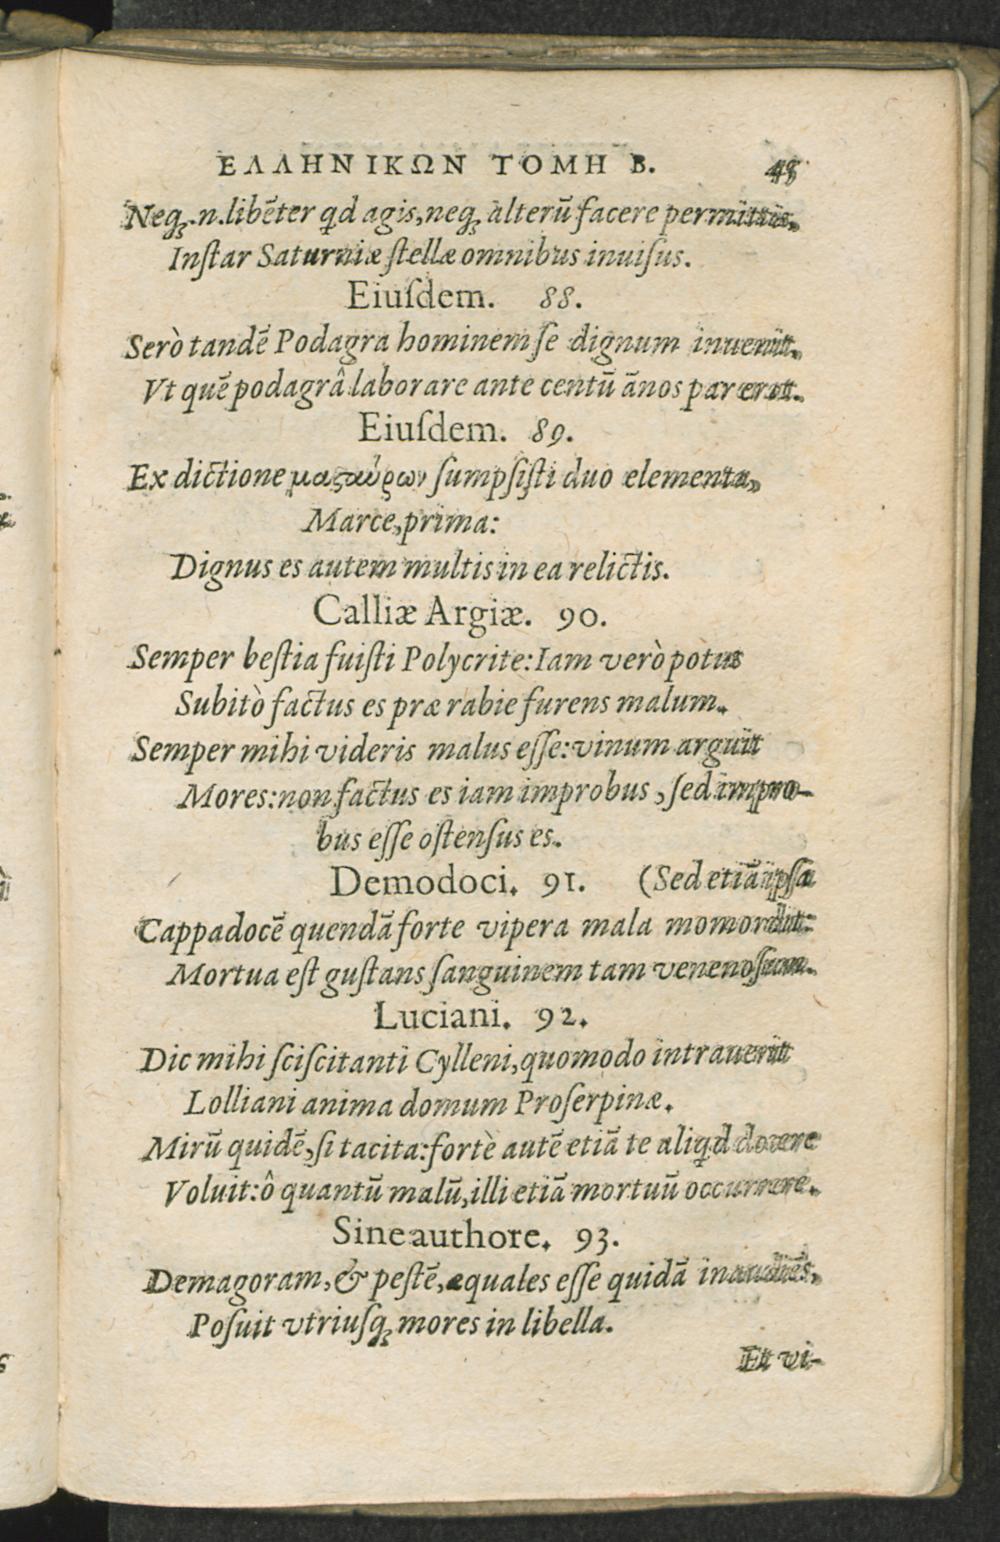 ΕΛΛΗΝΙΚΩΝ ΤΟΜΗ Β. 48
Neqꝫ.n.libēter qd agis,neqꝫ alterū facere permittis,
Inſtar Saturniæ ſtellæ omnibus inuiſus.
Eiuſdem. 88.
Serò tandē Podagra hominem ſe dignum inuenit,
Vt quē podagrâ laborare ante centū ānos par erat.
Eiuſdem. 89.
Ex dictione μαςαύρων ſumpſiſti duo elementa,
Marce,prima:
Dignus es autem multis in ea relictis.
Calliæ Argiæ. 90.
Semper beſtia fuiſti Polycrite:Iam verò potus
Subitò factus es præ rabie furens malum.
Semper mihi videris malus eſſe:vinum arguit
Mores:non factus es iam improbus, ſed impro-
bus eſſe oſtenſus es.
Demodoci. 91. (Sed etiā ipſa
Cappadocē quendā forte vipera mala momordit:
Mortua eſt guſtans ſanguinem tam venenoſum.
Luciani. 92.
Dic mihi ſciſcitanti Cylleni,quomodo intrauerit
Lolliani anima domum Proſerpinæ.
Mirū quidē,ſi tacita:fortè autē etiā te aliqd docere
Voluit:ô quantū malū,illi etiā mortuū occurrere.
Sine authore. 93.
Demagoram,& peſtē,æquales eſſe quidā inaudiēs,
Poſuit vtriuſqꝫ mores in libella.
Et vi-